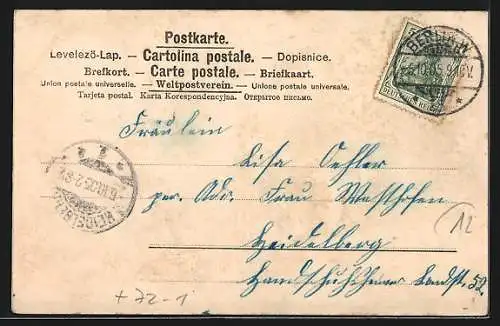 Postkarte.
Levelező-Lap. — Cartolina postale. — Dopisnice.
Brefkort. — Carte postale. — Briefkaart.
Union postale universelle. — Weltpostverein. — Unione postale universale.
Tarjeta postal. Karta Korespondencyjna. Открытое письмо.
BERLIN
5.10.05.9-10V.
DEUTSCHES REICH
Fräulein
Lisa Oehler
per. Adr. Frau Westhofen
Heidelberg
Handschuhsheimer Landst. 52.
HEIDELBERG
6.10.05.
12
+72-1